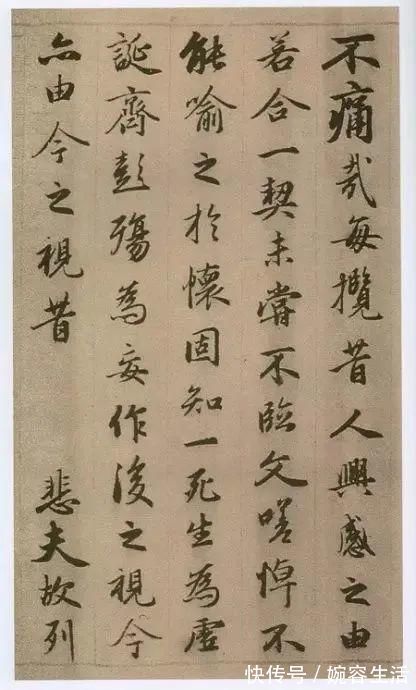 不痛哉每攬昔人興感之由
若合一契未嘗不臨文嗟悼不
能喻之於懷固知一死生為虛
誕齊彭殤為妄作後之視今
亦由今之視昔 悲夫故列
快传号/婉容生活